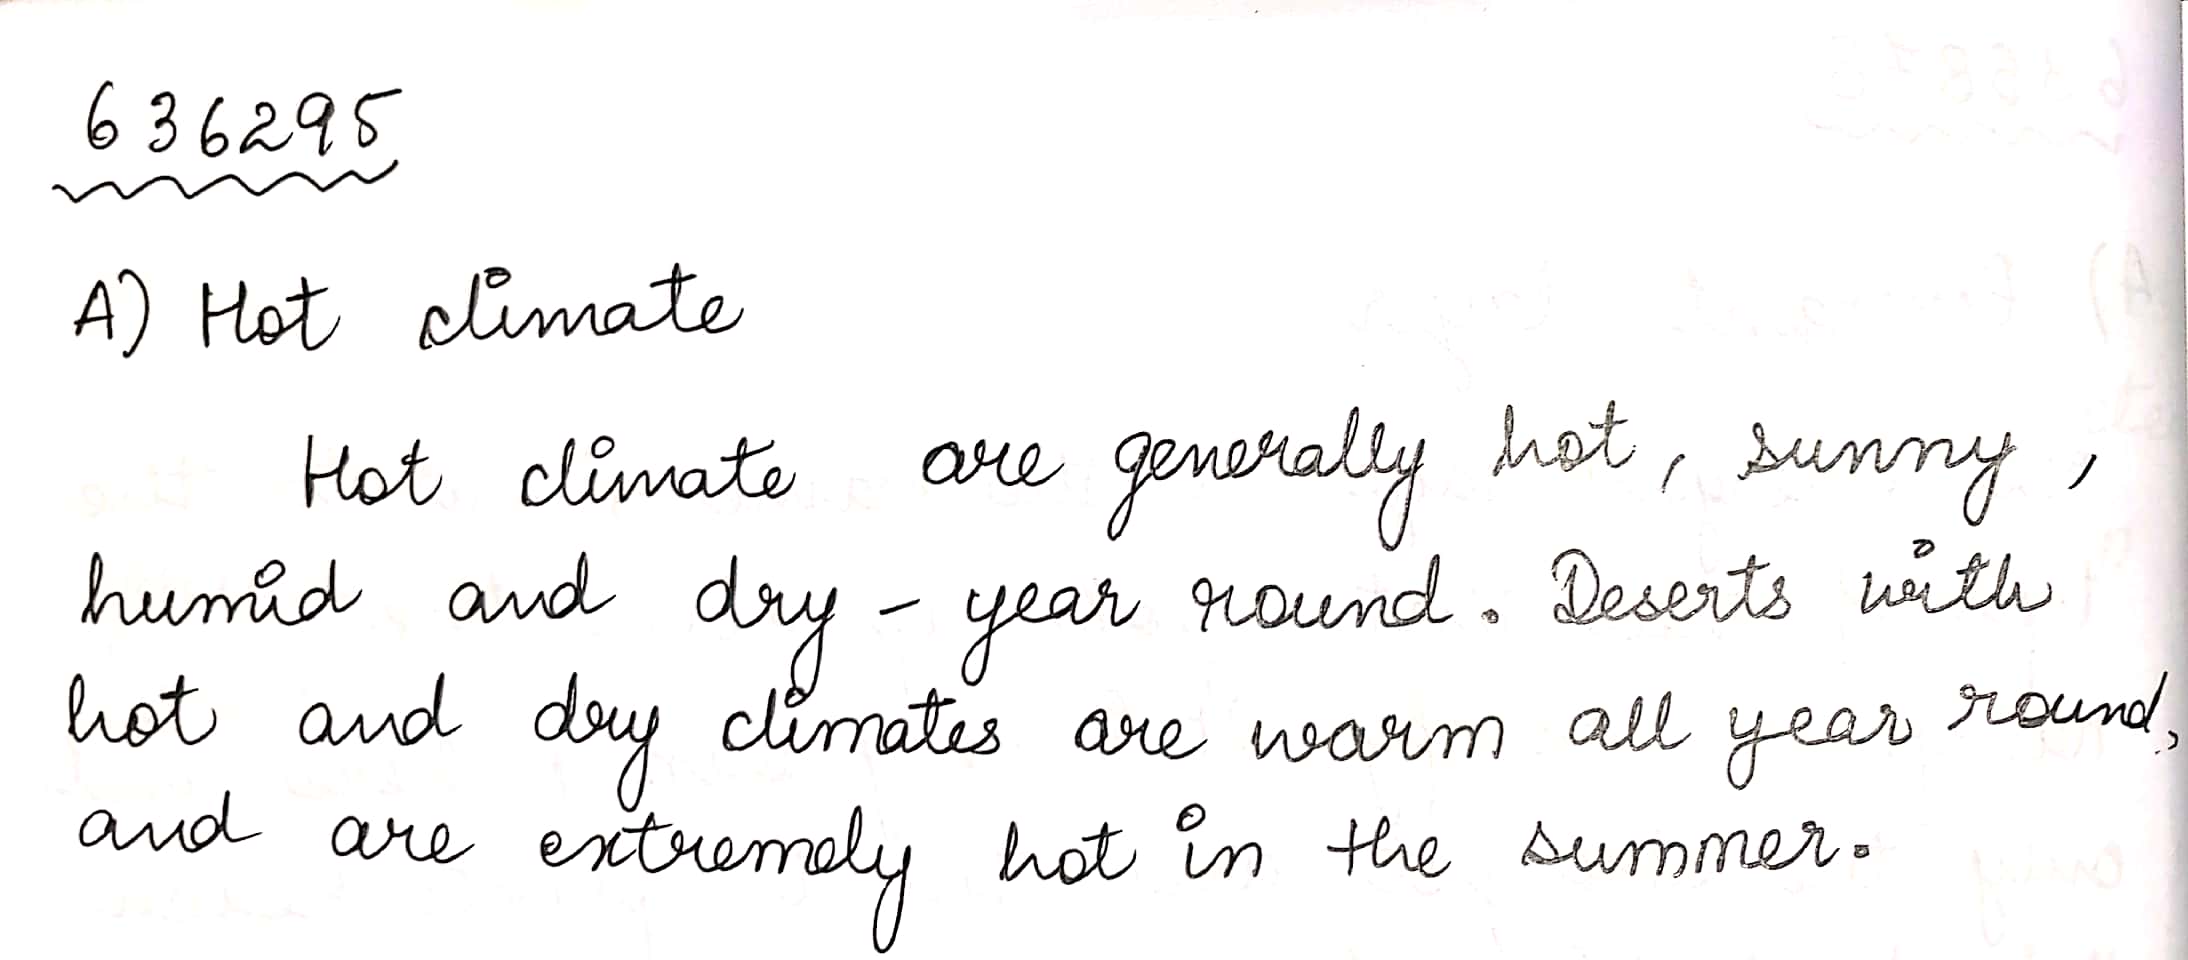 636295
A) Hot climate
Hot climate are generally hot, sunny,
humid and dry - year round. Deserts with
hot and dry climates are warm all year round,
and are extremely hot in the summer.